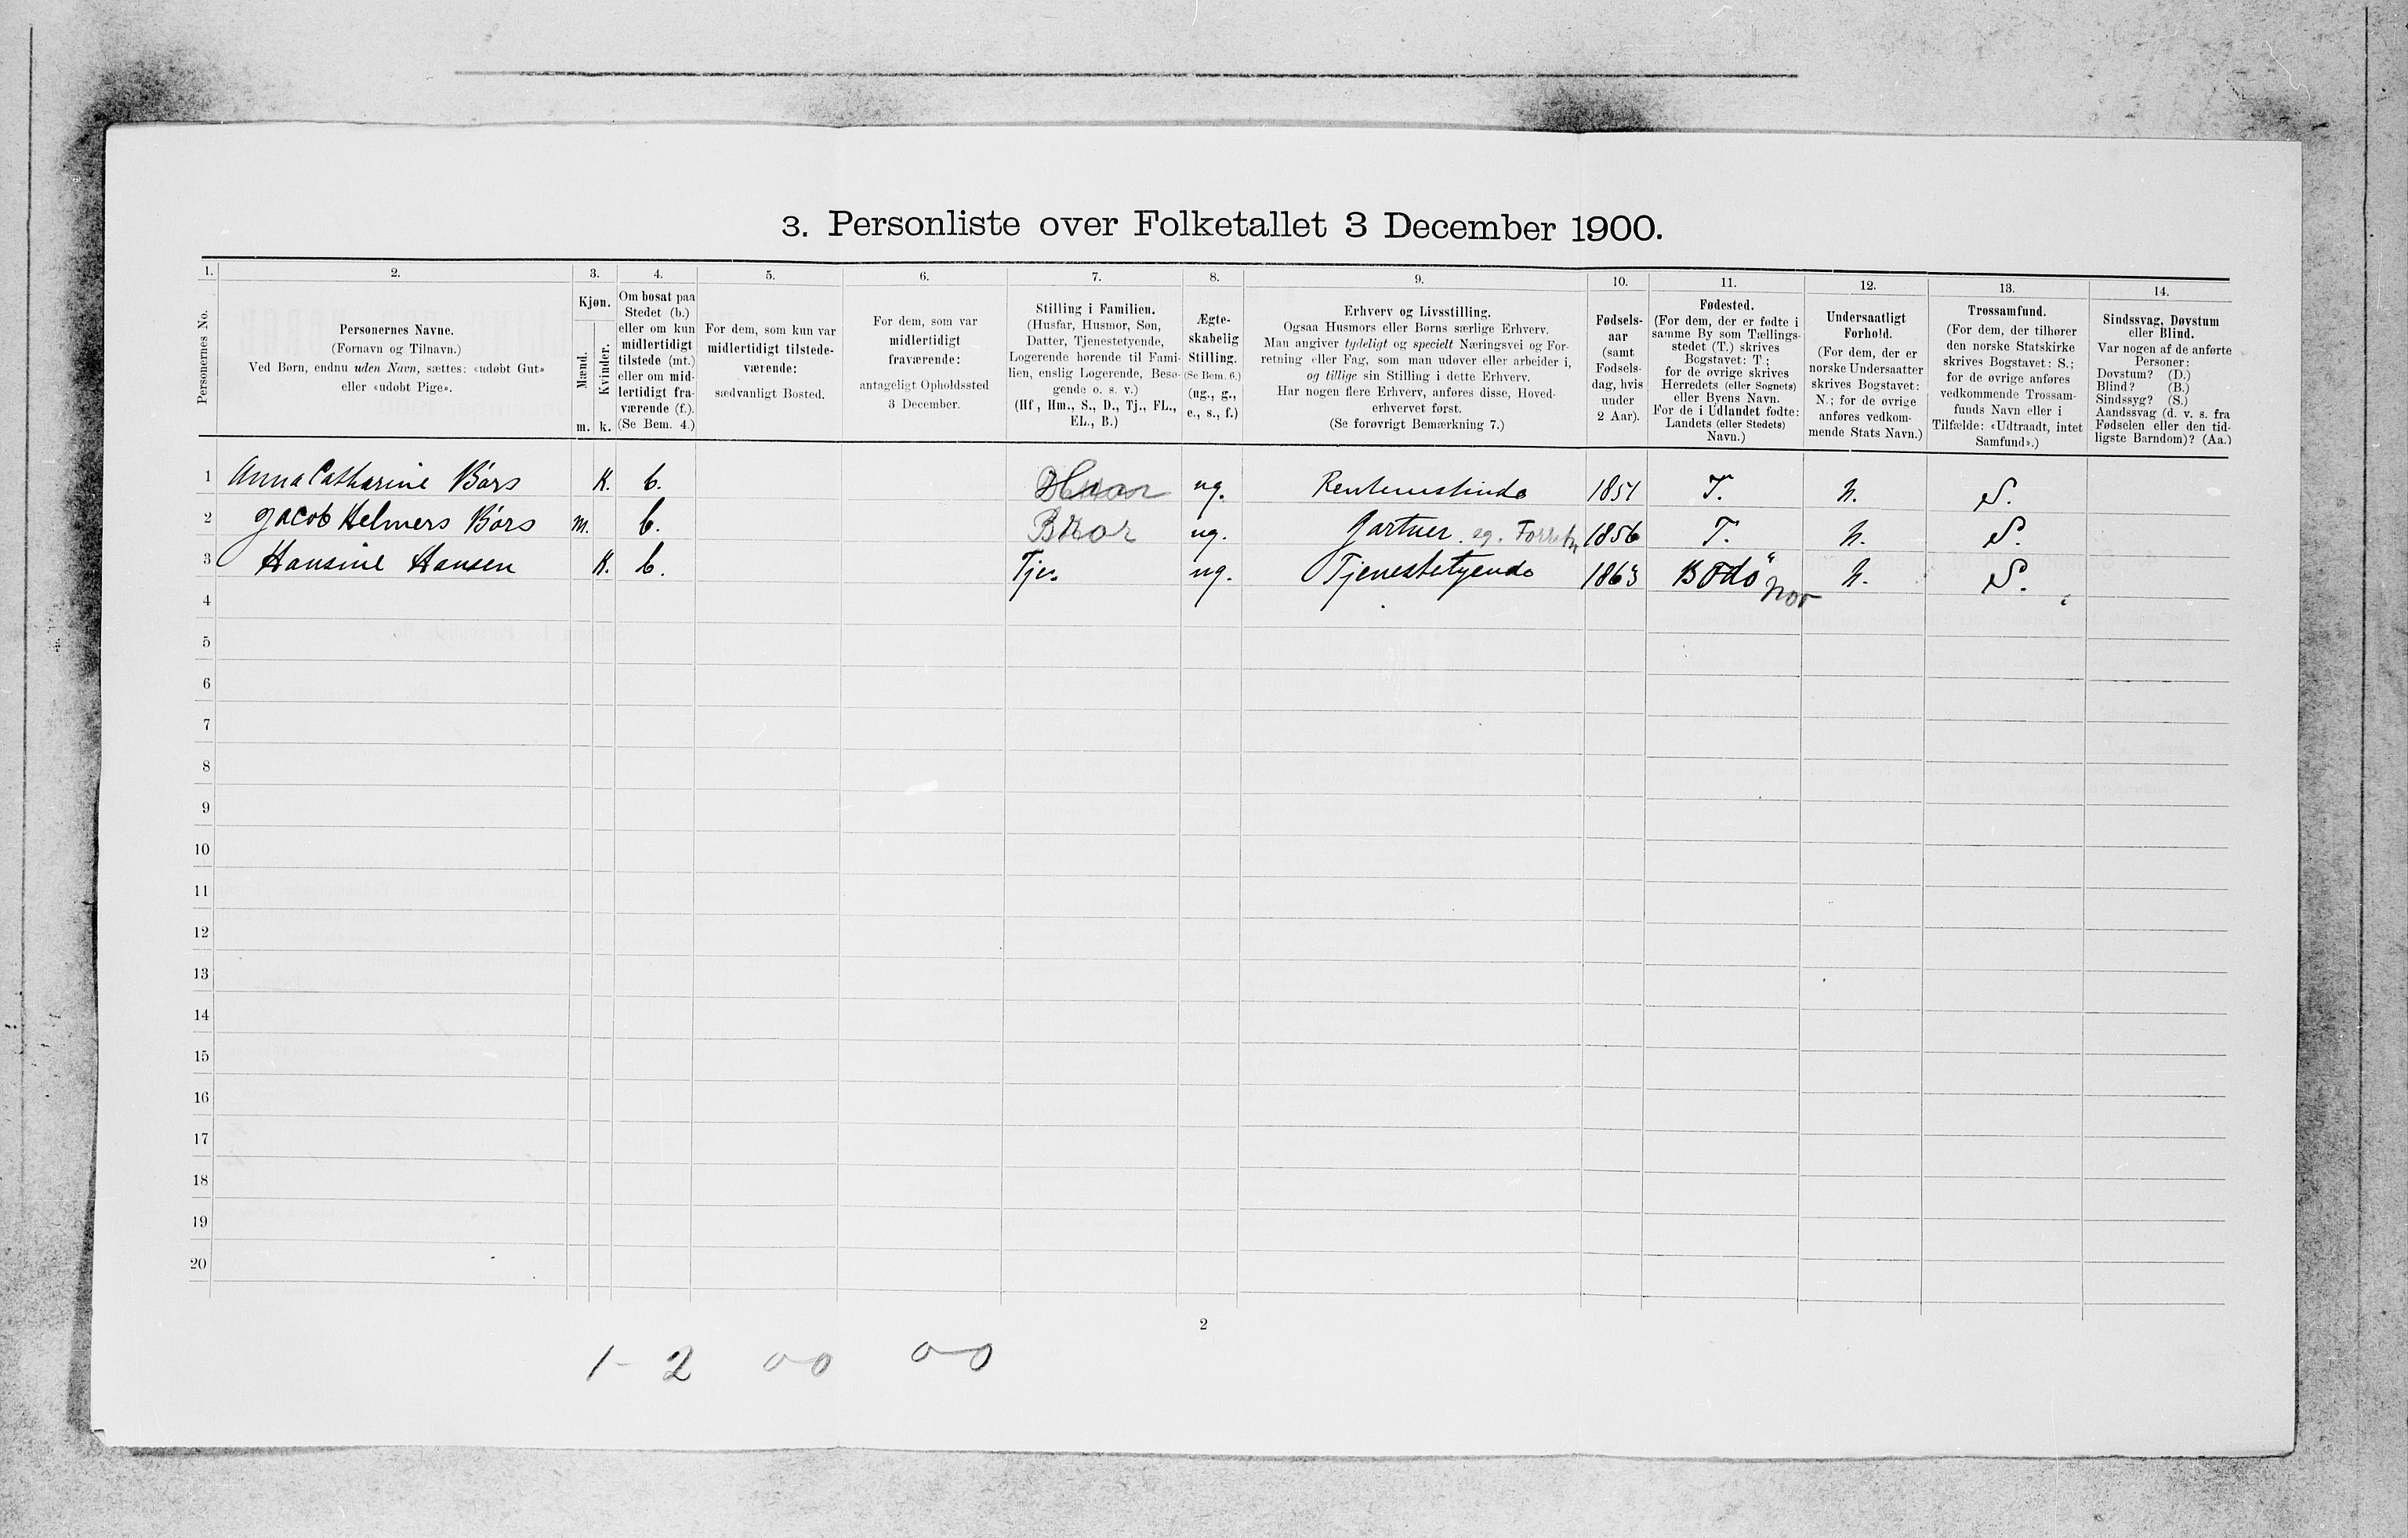 3. Personliste over Folketallet 3 December 1900.
1. 2. 3. 4. 5. 6. 7. 8. 9. 10. 11. 12. 13. 14.
Personernes No.
Personernes Navne.
(Fornavn og Tilnavn.)
Ved Børn, endnu uden Navn, sættes: «udøbt Gut»
eller «udøbt Pige».
Kjøn.
Mænd.
Kvinder.
m. k.
Om bosat paa
Stedet (b.)
eller om kun
midlertidigt
tilstede (mt.)
eller om mid-
lertidigt fra-
værende (f.).
(Se Bem. 4.)
For dem, som kun var
midlertidigt tilstede-
værende:
sædvanligt Bosted.
For dem, som var
midlertidigt
fraværende:
antageligt Opholdssted
3 December.
Stilling i Familien.
(Husfar, Husmor, Søn,
Datter, Tjenestetyende,
Logerende hørende til Fami-
lien, enslig Logerende, Besø-
gende o. s. v.)
(Hf., Hm., S., D., Tj., FL.,
EL., B.)
Ægte-
skabelig
Stilling.
(Se Bem. 6.)
(ug., g.,
e., s., f.)
Erhverv og Livsstilling.
Ogsaa Husmors eller Børns særlige Erhverv.
Man angiver tydeligt og specielt Næringsvei og For-
retning eller Fag, som man udøver eller arbeider i,
og tillige sin Stilling i dette Erhverv.
Har nogen flere Erhverv, anføres disse, Hoved-
erhvervet først.
(Se forøvrigt Bemærkning 7.)
Fødsels-
aar
(samt
Fødsels-
dag, hvis
under
2 Aar).
Fødested.
(For dem, der er fødte i
samme By som Tællings-
stedet (T.) skrives
Bogstavet: T.;
for de øvrige skrives
Herredets (eller Sognets)
eller Byens Navn.
For de i Udlandet fødte:
Landets (eller Stedets)
Navn.)
Undersaatligt
Forhold.
(For dem, der er
norske Undersaatter
skrives Bogstavet:
N.; for de øvrige
anføres vedkom-
mende Stats Navn.)
Trossamfund.
(For dem, der tilhører
den norske Statskirke
skrives Bogstavet: S.;
for de øvrige anføres
vedkommende Trossam-
funds Navn eller i
Tilfælde: «Udtraadt, intet
Samfund».)
Sindssvag, Døvstum
eller Blind.
Var nogen af de anførte
Personer:
Døvstum? (D.)
Blind? (B.)
Sindssyg? (S.)
Aandssvag (d. v. s. fra
Fødselen eller den tid-
ligste Barndom)? (Aa.)
1 Anna Catharine Börs K. b. ug. 1851 T. N. S.
2 Jacob Helmers Börs m. b. Bror ug. Gartner. eg. Forretn 1856 T. N. S.
3 Hansine Hansen K. b. Tje. ug. Tjenestetyende 1863 Bodö Nor N. S.
4
5
6
7
8
9
10
11
12
13
14
15
16
17
18
19
20
2
1-2 00 00